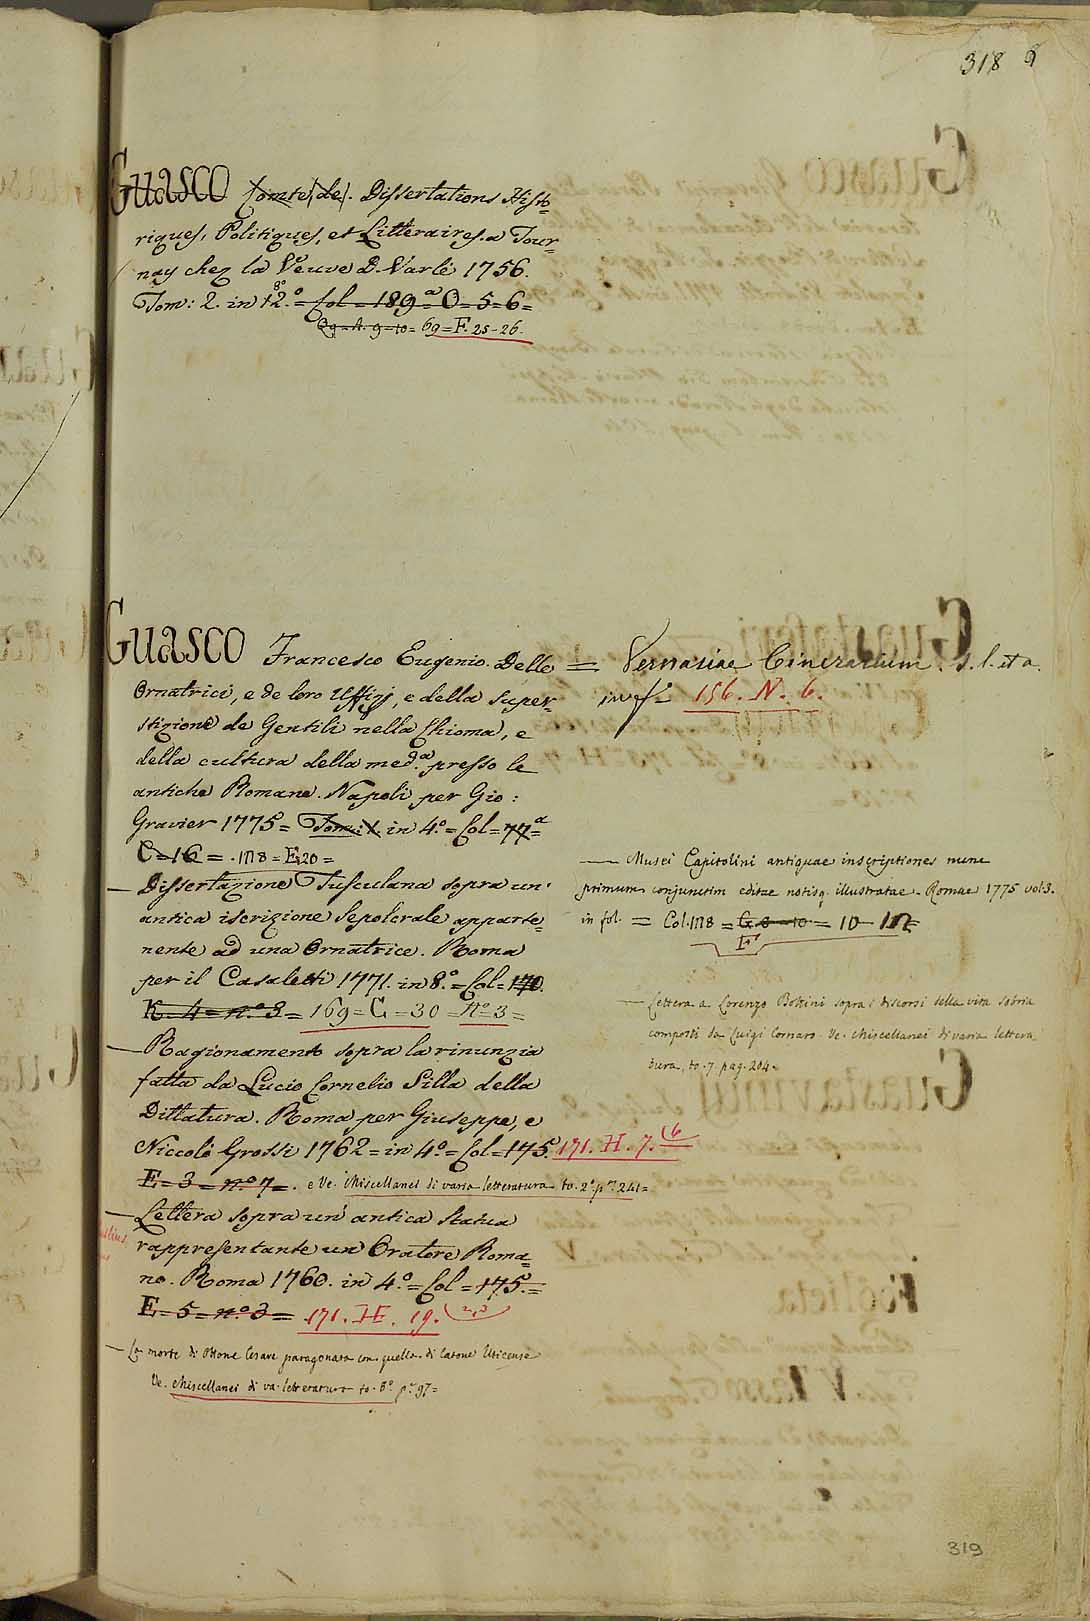 318
GUASCO Comte de. Dissertations Histo=
riques, Politiques, et Litteraires. a Tour=
nay chez la Veuve D. Varlé 1756.
Tom: 2. in 12.° = fol = 189 = O = 5 = 6 =
69 = F. 25 - 26.
GUASCO Francesco Eugenio. Delle
Ornatrici, e de loro Uffizj, e della super=
stizione de Gentili nella Chioma, e
della cultura della med.a presso le
antiche Romane. Napoli per Gio:
Gravier 1775 = Tom: 1. in 4.° = Col = 77 =
C = 16 = . 178 = E 20 =
— Dissertazione Tusculana sopra un'
antica iscrizione Sepolcrale apparte=
nente ad una Ornatrice. Roma
per il Casaletti 1771. in 8.° = Col = 170.
K. 4 = n.° 3 = 169 = C = 30 = N.° 3 =
— Ragionamento sopra la rinunzia
fatta da Lucio Cornelio Silla della
Dittatura. Roma per Giuseppe, e
Niccolò Grossi 1762 = in 4.° = Col = 175. 171. H. 7. (6
E = 3 = n.° 7 = . e Ve. Miscellanei di varia letteratura to. 2.° p.a 241 =
— Lettera sopra un' antica Statua
rappresentante un Oratore Roma=
no. Roma 1760. in 4.° = Col = 175. =
E = 5 = n.° 3 = 171. H. 19.
— La morte di Ottone Cesare paragonata con quella di Catone Uticense
Ve. Miscellanei di va. letteratura to. 8.° p.a 97 =
= Vernasiae Cinerarium. s. l. et a.
in f.° 156. N. 6.
— Musei Capitolini antiquae inscriptiones nunc
primum conjunctim editae notisq. illustratae. Romae 1775 vol. 3.
in fol. = Col. 178 = G 8 = 10 = 10
F
— Lettera a Lorenzo Bottini sopra i discorsi della vita sobria
composti da Luigi Cornaro. Ve. Miscellanei di varia lettera
tura, to. 7. pag. 204.
319